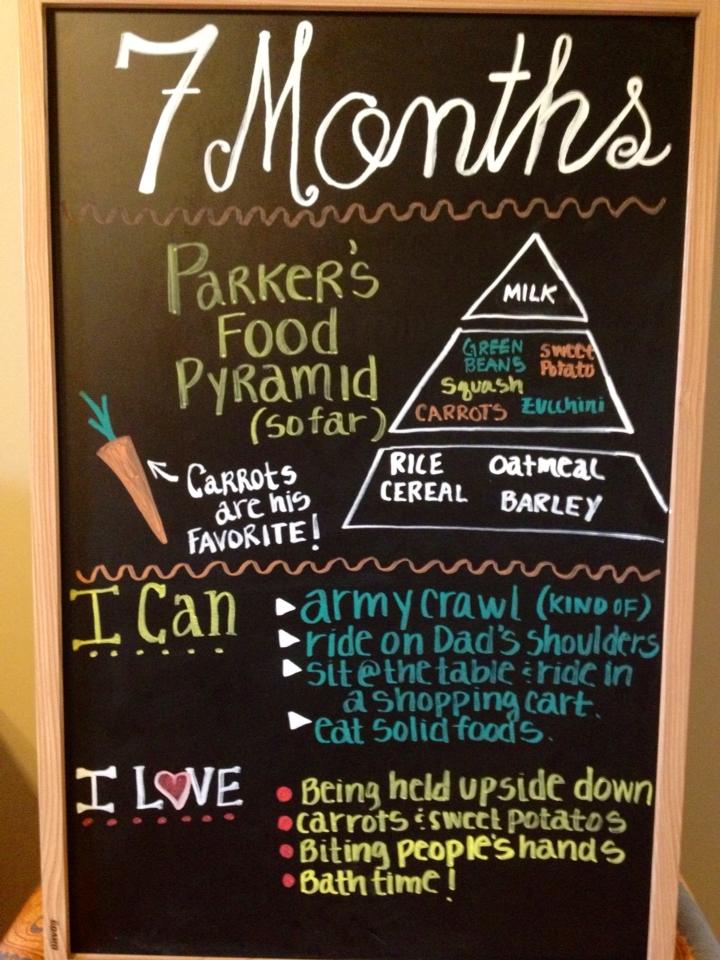 7 Months
PARKER'S
Food
PYRAMID
(so far)
MILK
GREEN BEANS
Sweet Potato
Squash
CARROTS
Zucchini
RICE CEREAL
Oatmeal
BARLEY
CARROTS
are his
FAVORITE!
I Can
army crawl (KIND OF)
ride on Dad's shoulders
sit @ the table & ride in
a shopping cart.
eat solid foods.
I LOVE
Being held upside down
carrots & sweet potatos
Biting people's hands
Bath time!